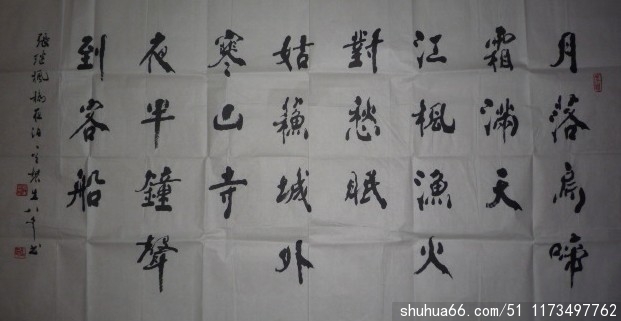 月落烏啼
霜滿天
江楓漁火
對愁眠
姑蘓城外
寒山寺
夜半鐘聲
到客船
張继楓橋夜泊
shuhua66.com/51 1173497762